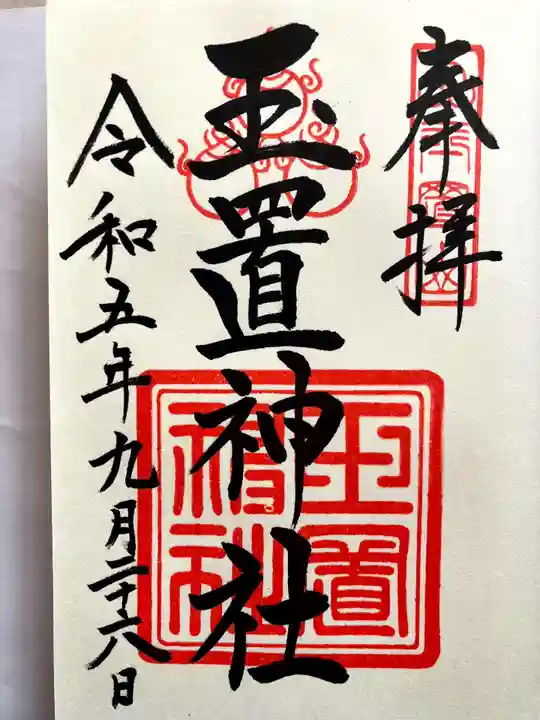 奉拝
玉置神社
玉置
神社
令和五年九月二十六日